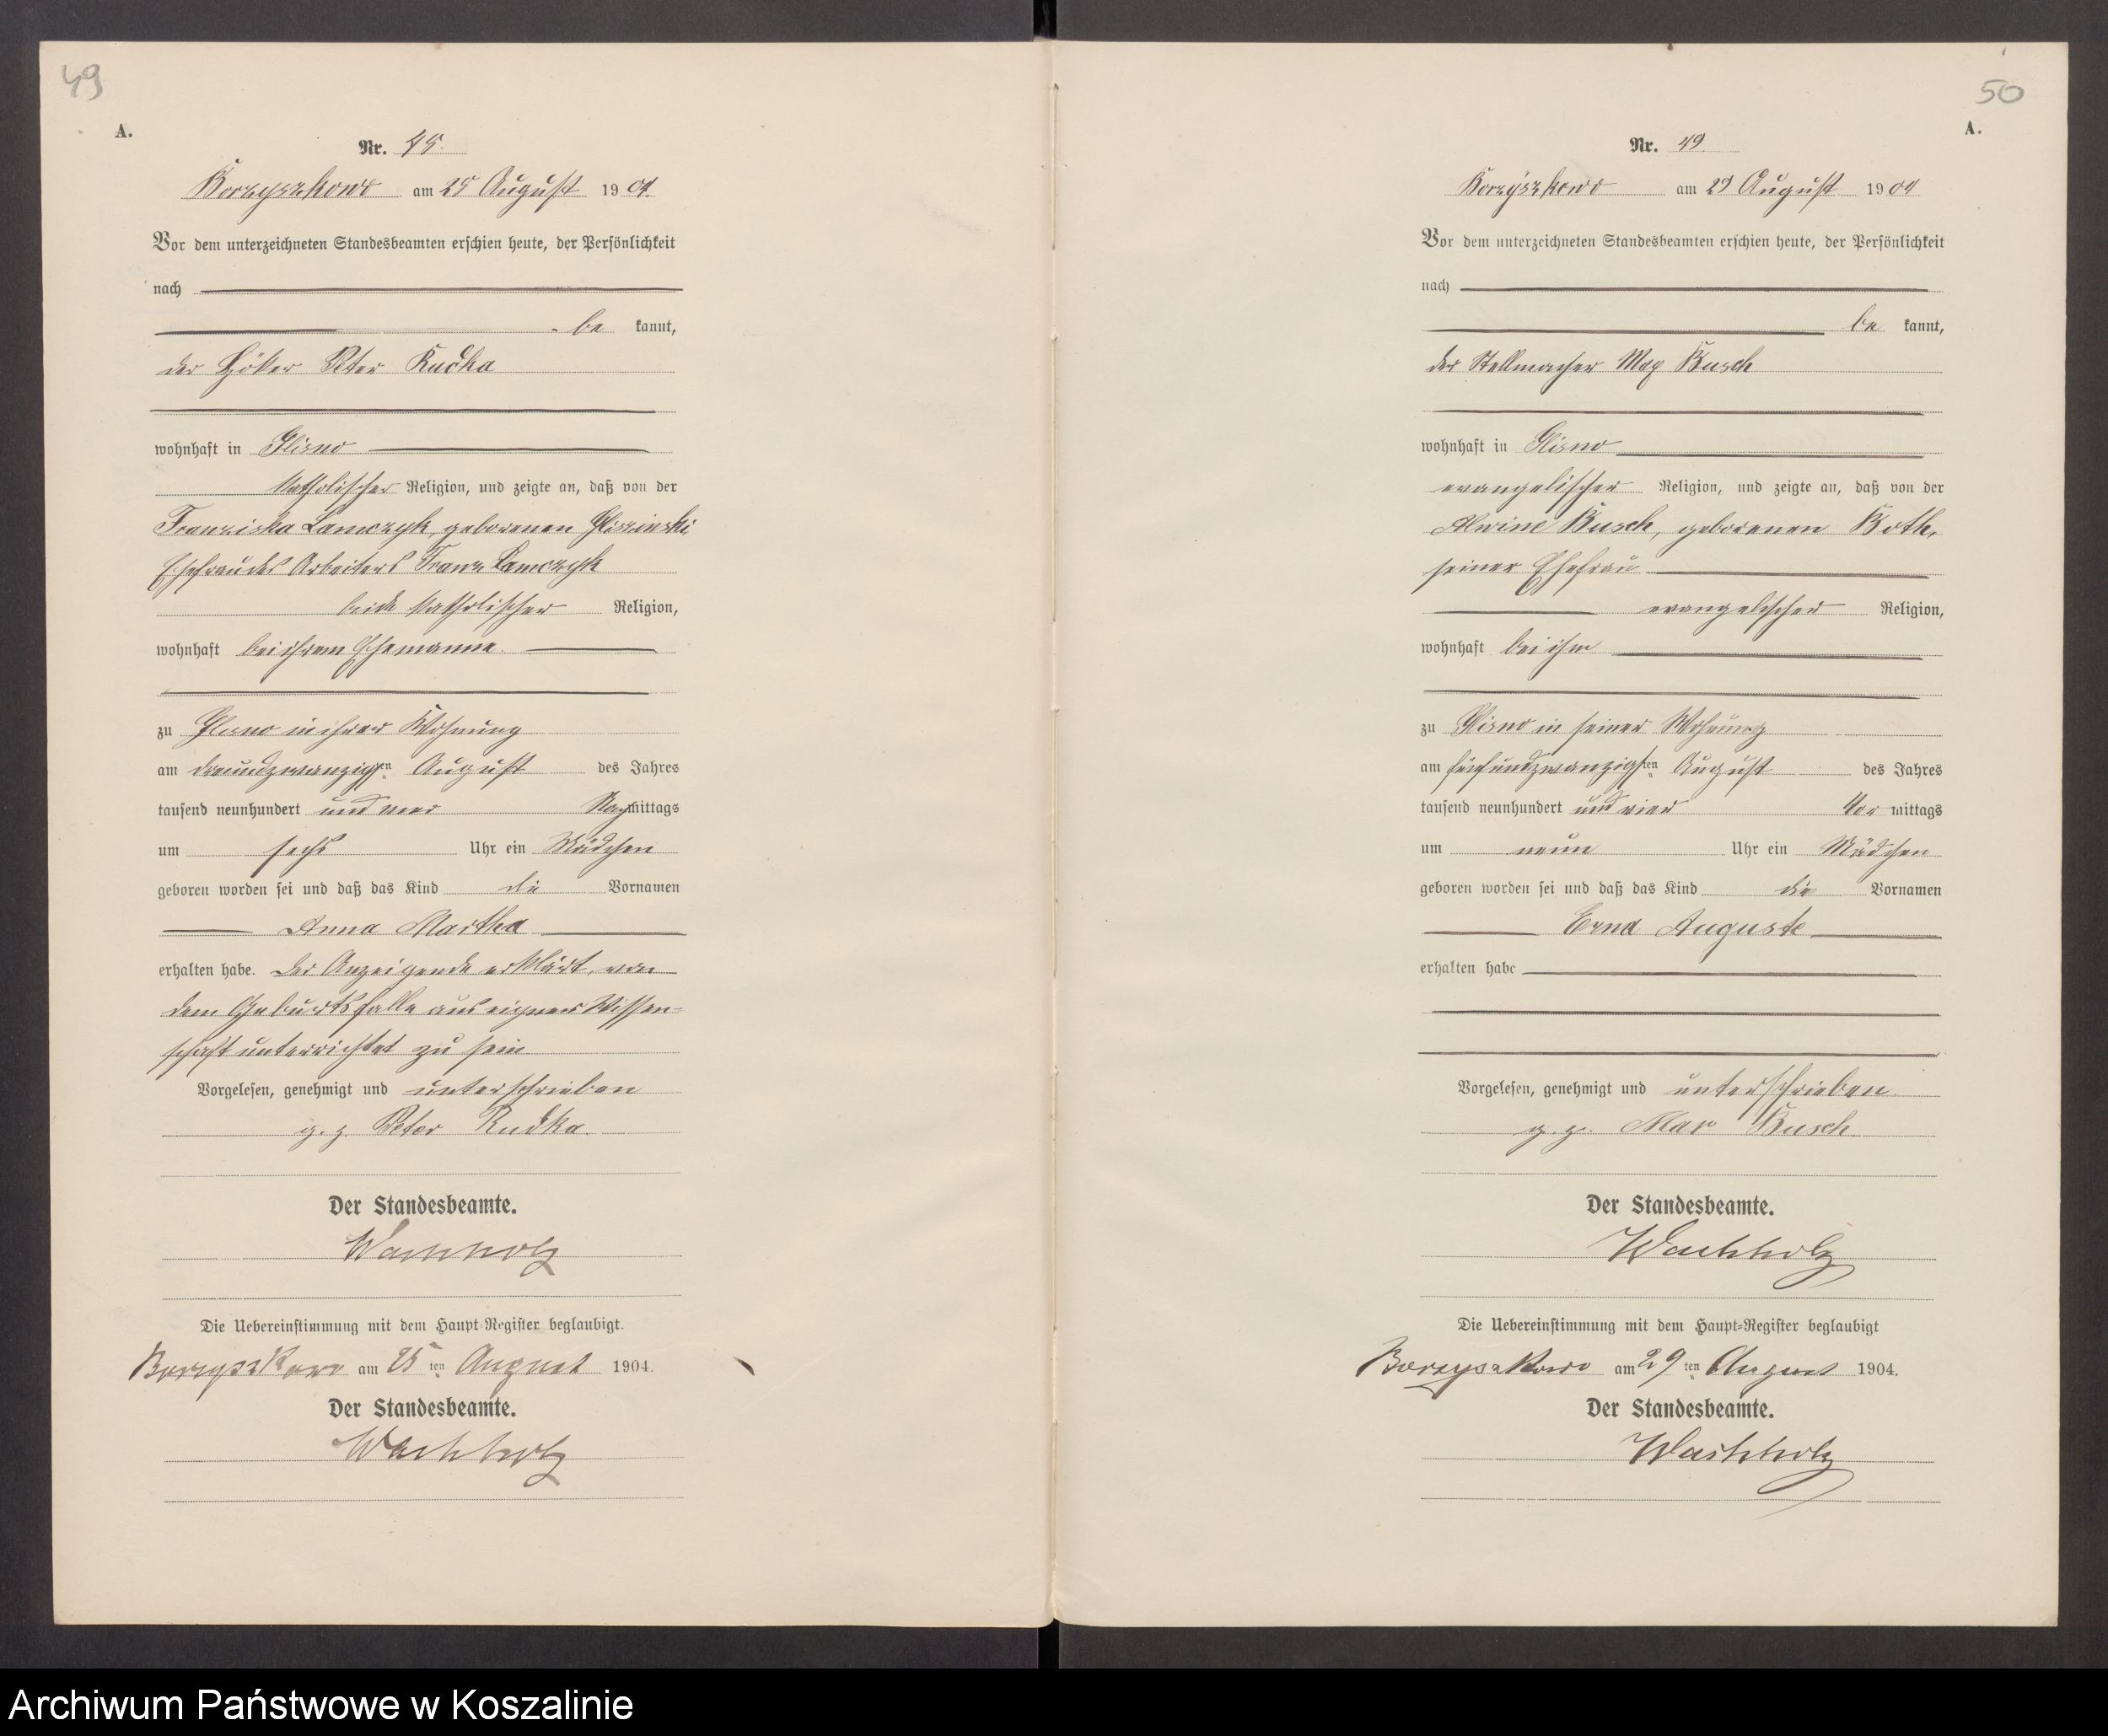 49
A.
Nr. 48.
Borzyszkowo am 25 August 1904.
Vor dem unterzeichneten Standesbeamten erschien heute, der Persönlichkeit
nach
be kannt,
der Höker Peter Rudka
wohnhaft in Glisno
katholischer Religion, und zeigte an, daß von der
Franziska Lamczyk, geborenen Gliszinski,
Ehefrau des Arbeiters Franz Lamczyk
beide katholischer Religion,
wohnhaft bei ihrem Ehemanne
zu Glisno in ihrer Wohnung
am dreiundzwanzigsten August des Jahres
tausend neunhundert und vier Nachmittags
um sechs Uhr ein Mädchen
geboren worden sei und daß das Kind die Vornamen
Anna Martha
erhalten habe. Der Anzeigende erklärt, von
dem Geburtsfalle aus eigner Wissen-
schaft unterrichtet zu sein
Vorgelesen, genehmigt und unterschrieben
g. z. Peter Rudka.
Der Standesbeamte.
Wachholz
Die Uebereinstimmung mit dem Haupt-Register beglaubigt.
Borzyszkowo am 25ten August 1904.
Der Standesbeamte.
Wachholz
50
A.
Nr. 49.
Borzyszkowo am 29 August 1904
Vor dem unterzeichneten Standesbeamten erschien heute, der Persönlichkeit
nach
be kannt,
der Stellmacher Max Busch
wohnhaft in Glisno
evangelischer Religion, und zeigte an, daß von der
Alwine Busch, geborenen Both,
seiner Ehefrau
evangelischer Religion,
wohnhaft bei ihm
zu Glisno in seiner Wohnung
am fünfundzwanzigsten August des Jahres
tausend neunhundert und vier Vor mittags
um neun Uhr ein Mädchen
geboren worden sei und daß das Kind die Vornamen
Erna Auguste
erhalten habe
Vorgelesen, genehmigt und unterschrieben.
g. z. Max Busch
Der Standesbeamte.
Wachholz
Die Uebereinstimmung mit dem Haupt-Register beglaubigt
Borzyszkowo am 29ten August 1904.
Der Standesbeamte.
Wachholz
Archiwum Państwowe w Koszalinie